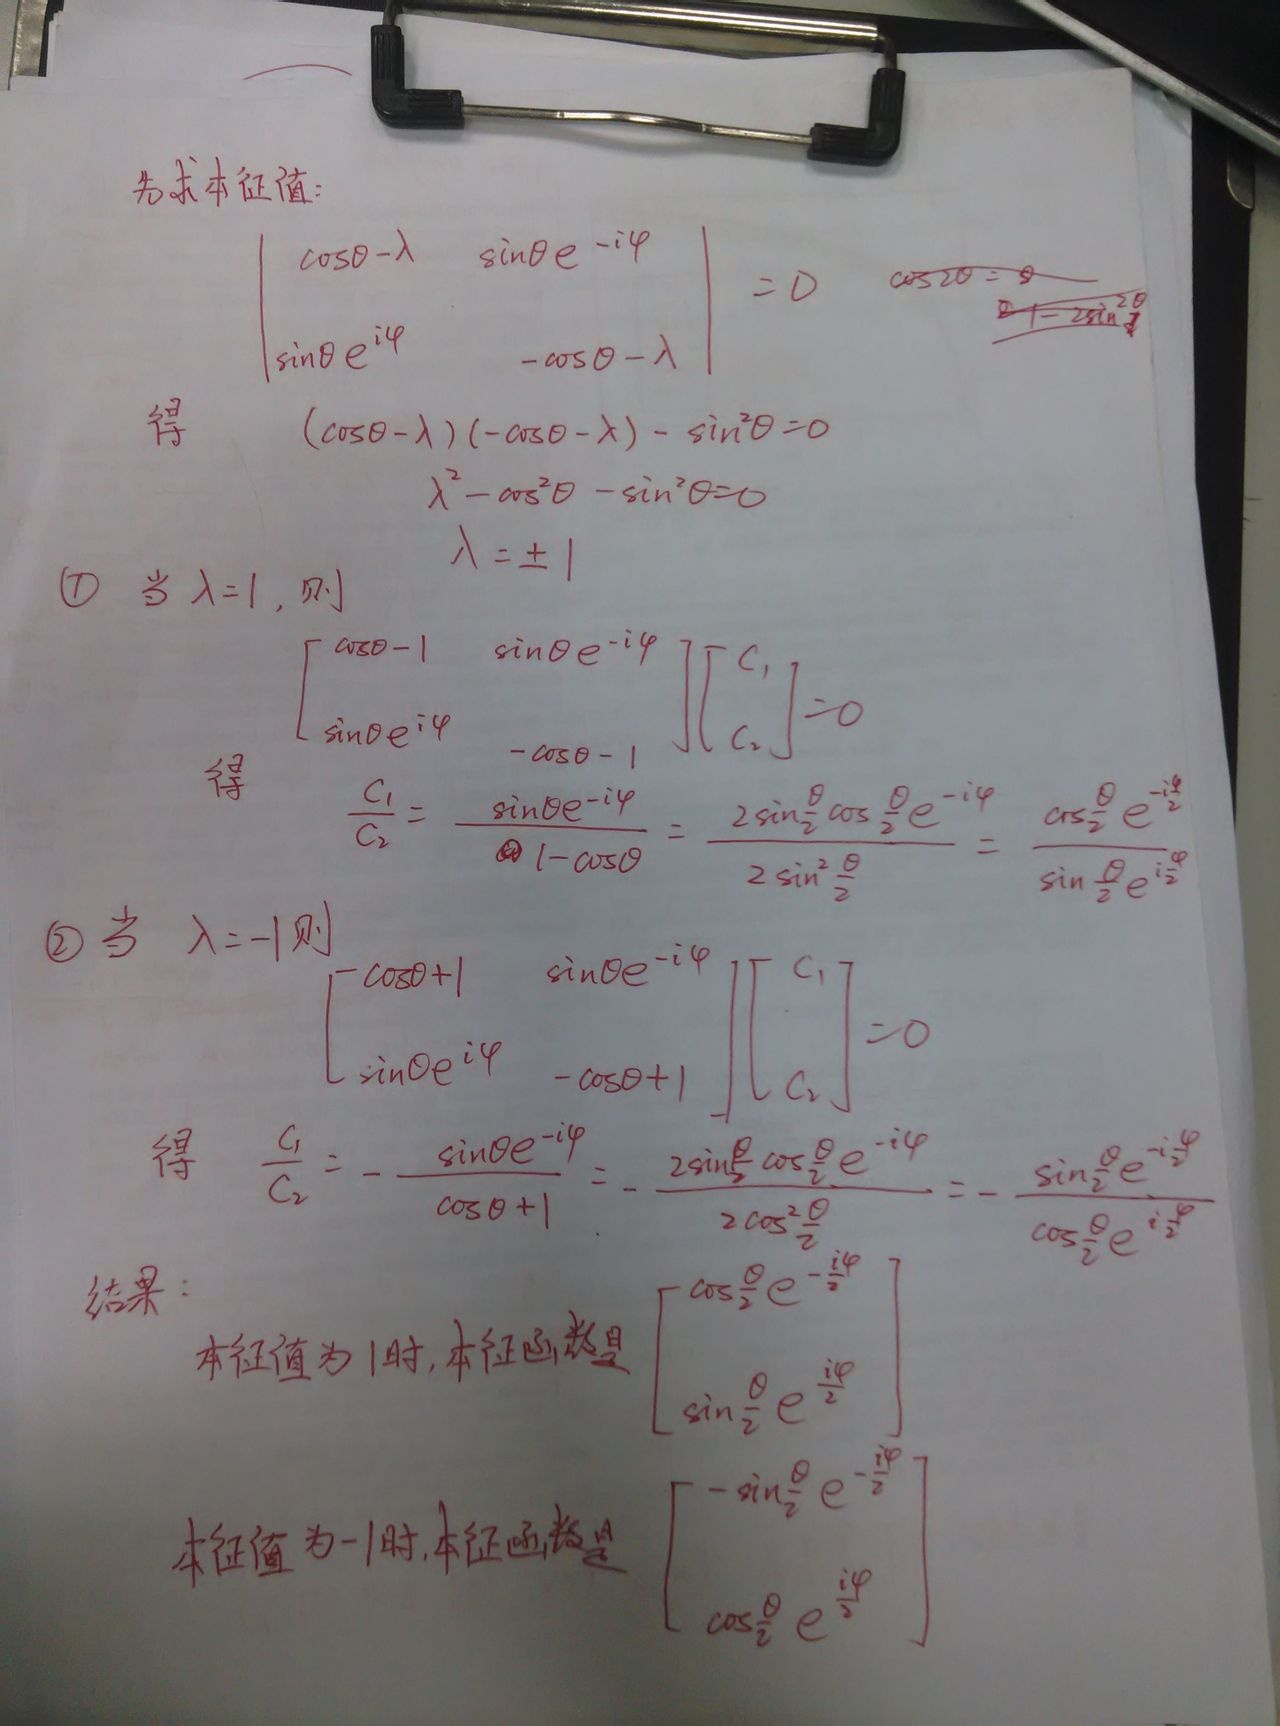 为求本征值:
| cosθ-λ  sinθe^{-iφ} |
| sinθe^{iφ}  -cosθ-λ | = 0
得 (cosθ-λ)(-cosθ-λ) - sin²θ=0
λ²-cos²θ-sin²θ=0
λ=±1
① 当 λ=1, 则
[ cosθ-1  sinθe^{-iφ} ] [ C₁ ]
[ sinθe^{iφ}  -cosθ-1 ] [ C₂ ] =0
得 C₁/C₂ = sinθe^{-iφ}/(1-cosθ) = 2sin(θ/2)cos(θ/2)e^{-iφ}/(2sin²(θ/2)) = cos(θ/2)e^{-iφ/2}/(sin(θ/2)e^{iφ/2})
② 当 λ=-1 则
[ cosθ+1  sinθe^{-iφ} ] [ C₁ ]
[ sinθe^{iφ}  -cosθ+1 ] [ C₂ ] =0
得 C₁/C₂ = - sinθe^{-iφ}/(cosθ+1) = - 2sin(θ/2)cos(θ/2)e^{-iφ}/(2cos²(θ/2)) = - sin(θ/2)e^{-iφ/2}/(cos(θ/2)e^{iφ/2})
结果:
本征值为1时,本征函数是 [ cos(θ/2)e^{-iφ/2} ]
[ sin(θ/2)e^{iφ/2} ]
本征值为-1时,本征函数是 [ -sin(θ/2)e^{-iφ/2} ]
[ cos(θ/2)e^{iφ/2} ]